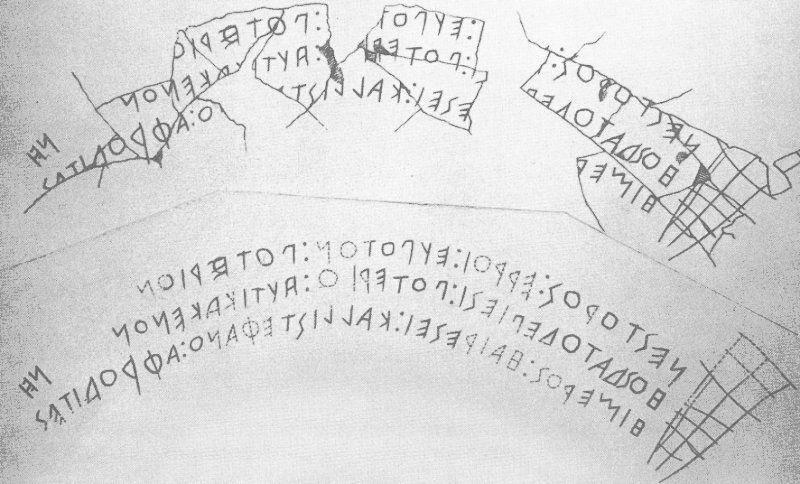 ΝΕΣΤΟΡΟΣ: :ΕΥΠΟΤ :ΠΟΤΕΡΙΟ
ΗΟΣΔΑΤΟΔΕ :ΠΟΤΕΡ :ΑΥΤ ΚΑΚΕΝΟΝ
ΗΙΜΕΡ ΕΣΕΙ:ΚΑΛΛΙΣΤ Ο:ΑΦΡΟΔΙΤΕΣ
ΝΕΣΤΟΡΟΣ:ΕΡΡΟΙ:ΕΥΠΟΤΟΝ:ΠΟΤΕΡΙΟΝ
ΗΟΣΔΑΤΟΔΕΠΙΕΣΙ:ΠΟΤΕΡΙΟ:ΑΥΤΙΚΑΚΕΝΟΝ
ΗΙΜΕΡΟΣ:ΗΑΙΡΕΣΕΙ:ΚΑΛΛΙΣΤΕΦΑΝΟ:ΑΦΡΟΔΙΤΕΣ